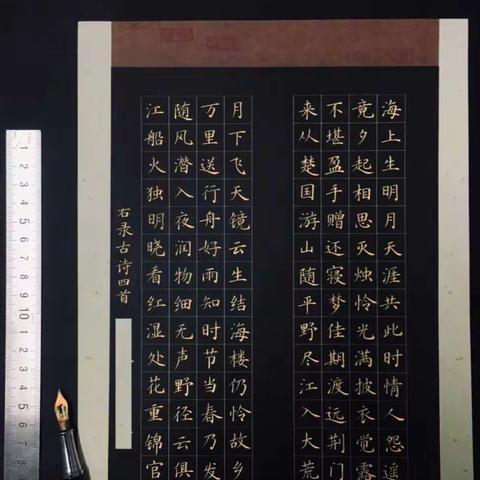 海上生明月天涯共此时情人怨遥
竟夕起相思灭烛怜光满披衣觉露
不堪盈手赠还寝梦佳期渡远荆门
来从楚国游山随平野尽江入大荒
月下飞天镜云生结海楼仍怜故乡
万里送行舟好雨知时节当春乃发
随风潜入夜润物细无声野径云俱
江船火独明晓看红湿处花重锦官
右录古诗四首
1 2 3 4 5 6 7 8 9 10